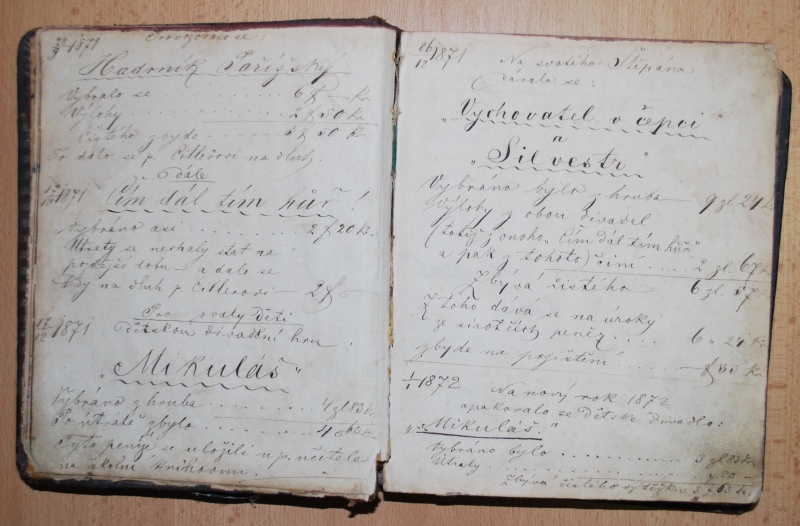 1871
Provozovalo se:
Hadrník Pařížský
Vybralo se . . . . . . 6 f kr.
Výlohy . . . . . . 2 f 50 kr.
Čistého zbyde . . . . 3 f 50 kr.
To dalo se p. Cillerovi na dluh.
Dále
1871 Čím dál tím hůř!
Vybráno asi . . . . . . 2 f 20 kr.
Útraty se nechaly stat na
pozdější dobu – a dalo se
tedy na dluh p Cillerovi – 2 f –
Provozovaly Děti
17/12 1871 Dětskou divadtní hru:
„Mikuláš“
Vybráno z hruba . . . . . . 4 zl 83 kr.
Po útratě zbylo . . . . . . 4
Tyto peníze se uložili u p. učitele
na školní knihovnu.
26/12 1871 Na svatého Štěpána
dávalo se:
„Vychovatel v čepci“
a
„Silvestr“
Vybráno bylo z hruba 9 zl. 24 k
Výlohy z obou divadel
(totiž z onoho „Čím dál tím hůř“
a pak z tohoto) činí . . . . 2 zl. 67 k
Zbývá čistého 6 zl. 57
Z toho dává se na úroky
ze sirotčích peněz . . . . 6 „ 24 kr.
zbyde na pojištění . . . . . f 33 kr.
1/1 1872 Na nový rok 1872
opakovalo se Dětské divadlo:
„Mikuláš.“
Vybráno bylo . . . . . . 3 zl 83 kr.
Útraty . . . . . .
Zbývá čistého výtěžku 3 f 03 k.